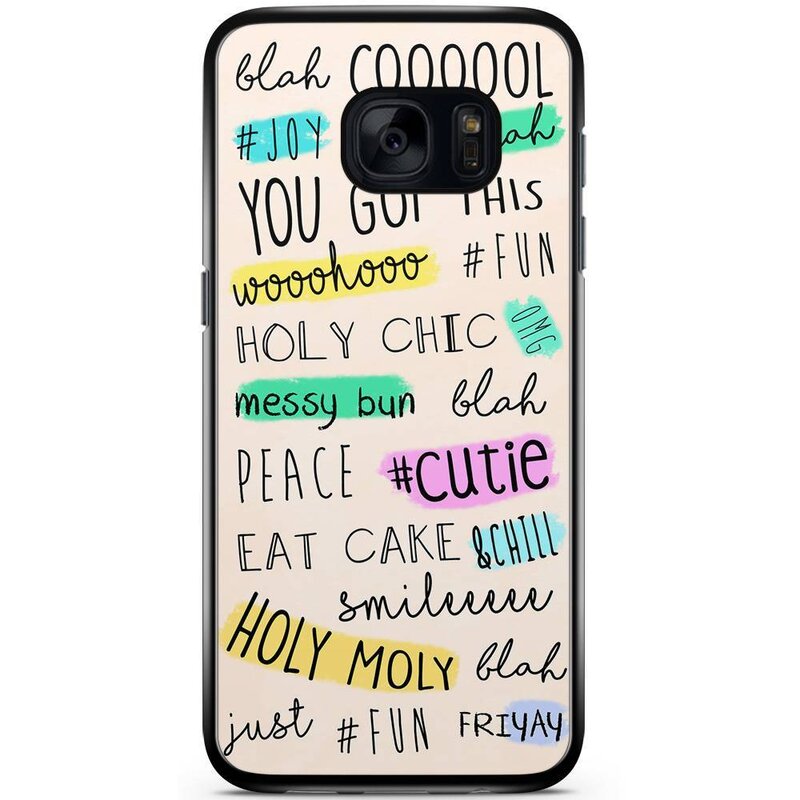 blah COOOOOL
#JOY
YOU GOT THIS
wooohooo #FUN
HOLY CHIC OMG
messy bun blah
PEACE #cutie
EAT CAKE &CHILL
smileeeee
HOLY MOLY blah
just #FUN FRIYAY